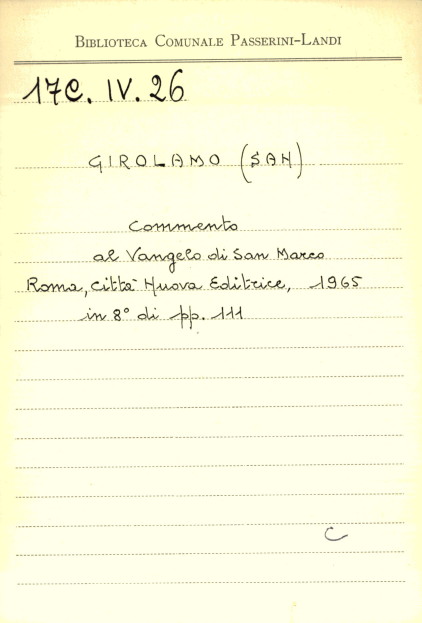 BIBLIOTECA COMUNALE PASSERINI-LANDI
17C. IV. 26
GIROLAMO (SAN)
Commento
al Vangelo di San Marco
Roma, Città Nuova Editrice, 1965
in 8° di pp. 111
C